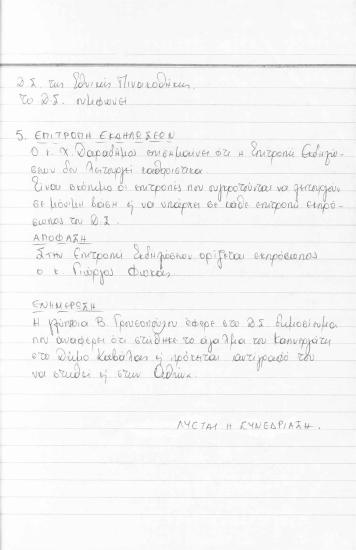 Δ.Σ. της Εθνικής Πινακοθήκης.
Το Δ.Σ. συμφωνεί
5. ΕΠΙΤΡΟΠΗ ΕΚΔΗΛΩΣΕΩΝ
Ο κ. Χ. Παραδήμος επισημαίνει ότι η Επιτροπή Εκδηλώ-
σεων δεν λειτουργεί καθοριστικά.
Είναι σκόπιμο οι επιτροπές που συγκροτούνται να λειτουργούν
σε μόνιμη βάση ή να υπάρχει σε κάθε επιτροπή εκπρό-
σωπος του Δ.Σ.
ΑΠΟΦΑΣΗ
Στην Επιτροπή Εκδηλώσεων ορίζεται εκπρόσωπος
ο κ. Γιώργος
ΕΝΗΜΕΡΩΣΗ
Η γλύπτρια Β. έφερε στο Δ.Σ. δημοσίευμα
που αναφέρει ότι στήθηκε το άγαλμα του Καπνεργάτη
στο Δήμο Καβάλας ή πρότεινε αντίγραφό του
να στηθεί ή στην Αθήνα.
ΛΥΕΤΑΙ Η ΣΥΝΕΔΡΙΑΣΗ.